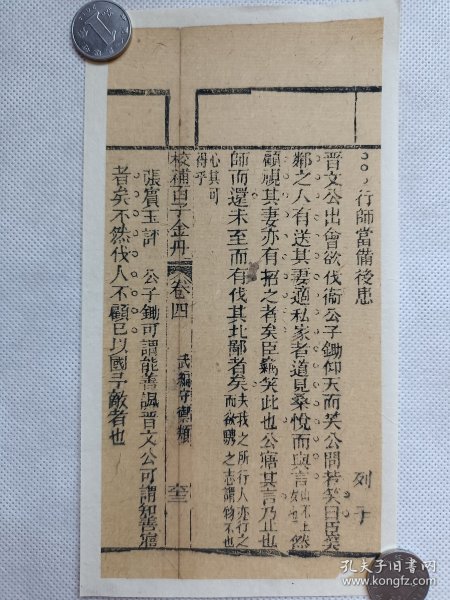 行師當備後患 列子
晉文公出會欲伐衞公子鋤仰天而笑公問若笑曰臣笑
鄰之人有送其妻適私家者道見桑悅而與言然
顧視其妻亦有招之者矣臣竊笑此也公寤其言乃止也
師而還未至而有伐其北鄙者矣夫我之所行人亦行之而欲騁之志謂物不也
心其可得乎
校補百子金丹 卷四 武編守禦類
張賓王評 公子鋤可謂能善諷晉文公可謂知善寤
者矣不然伐人不顧已以國予敵者也
孔夫子旧书网
book.kongfz.com